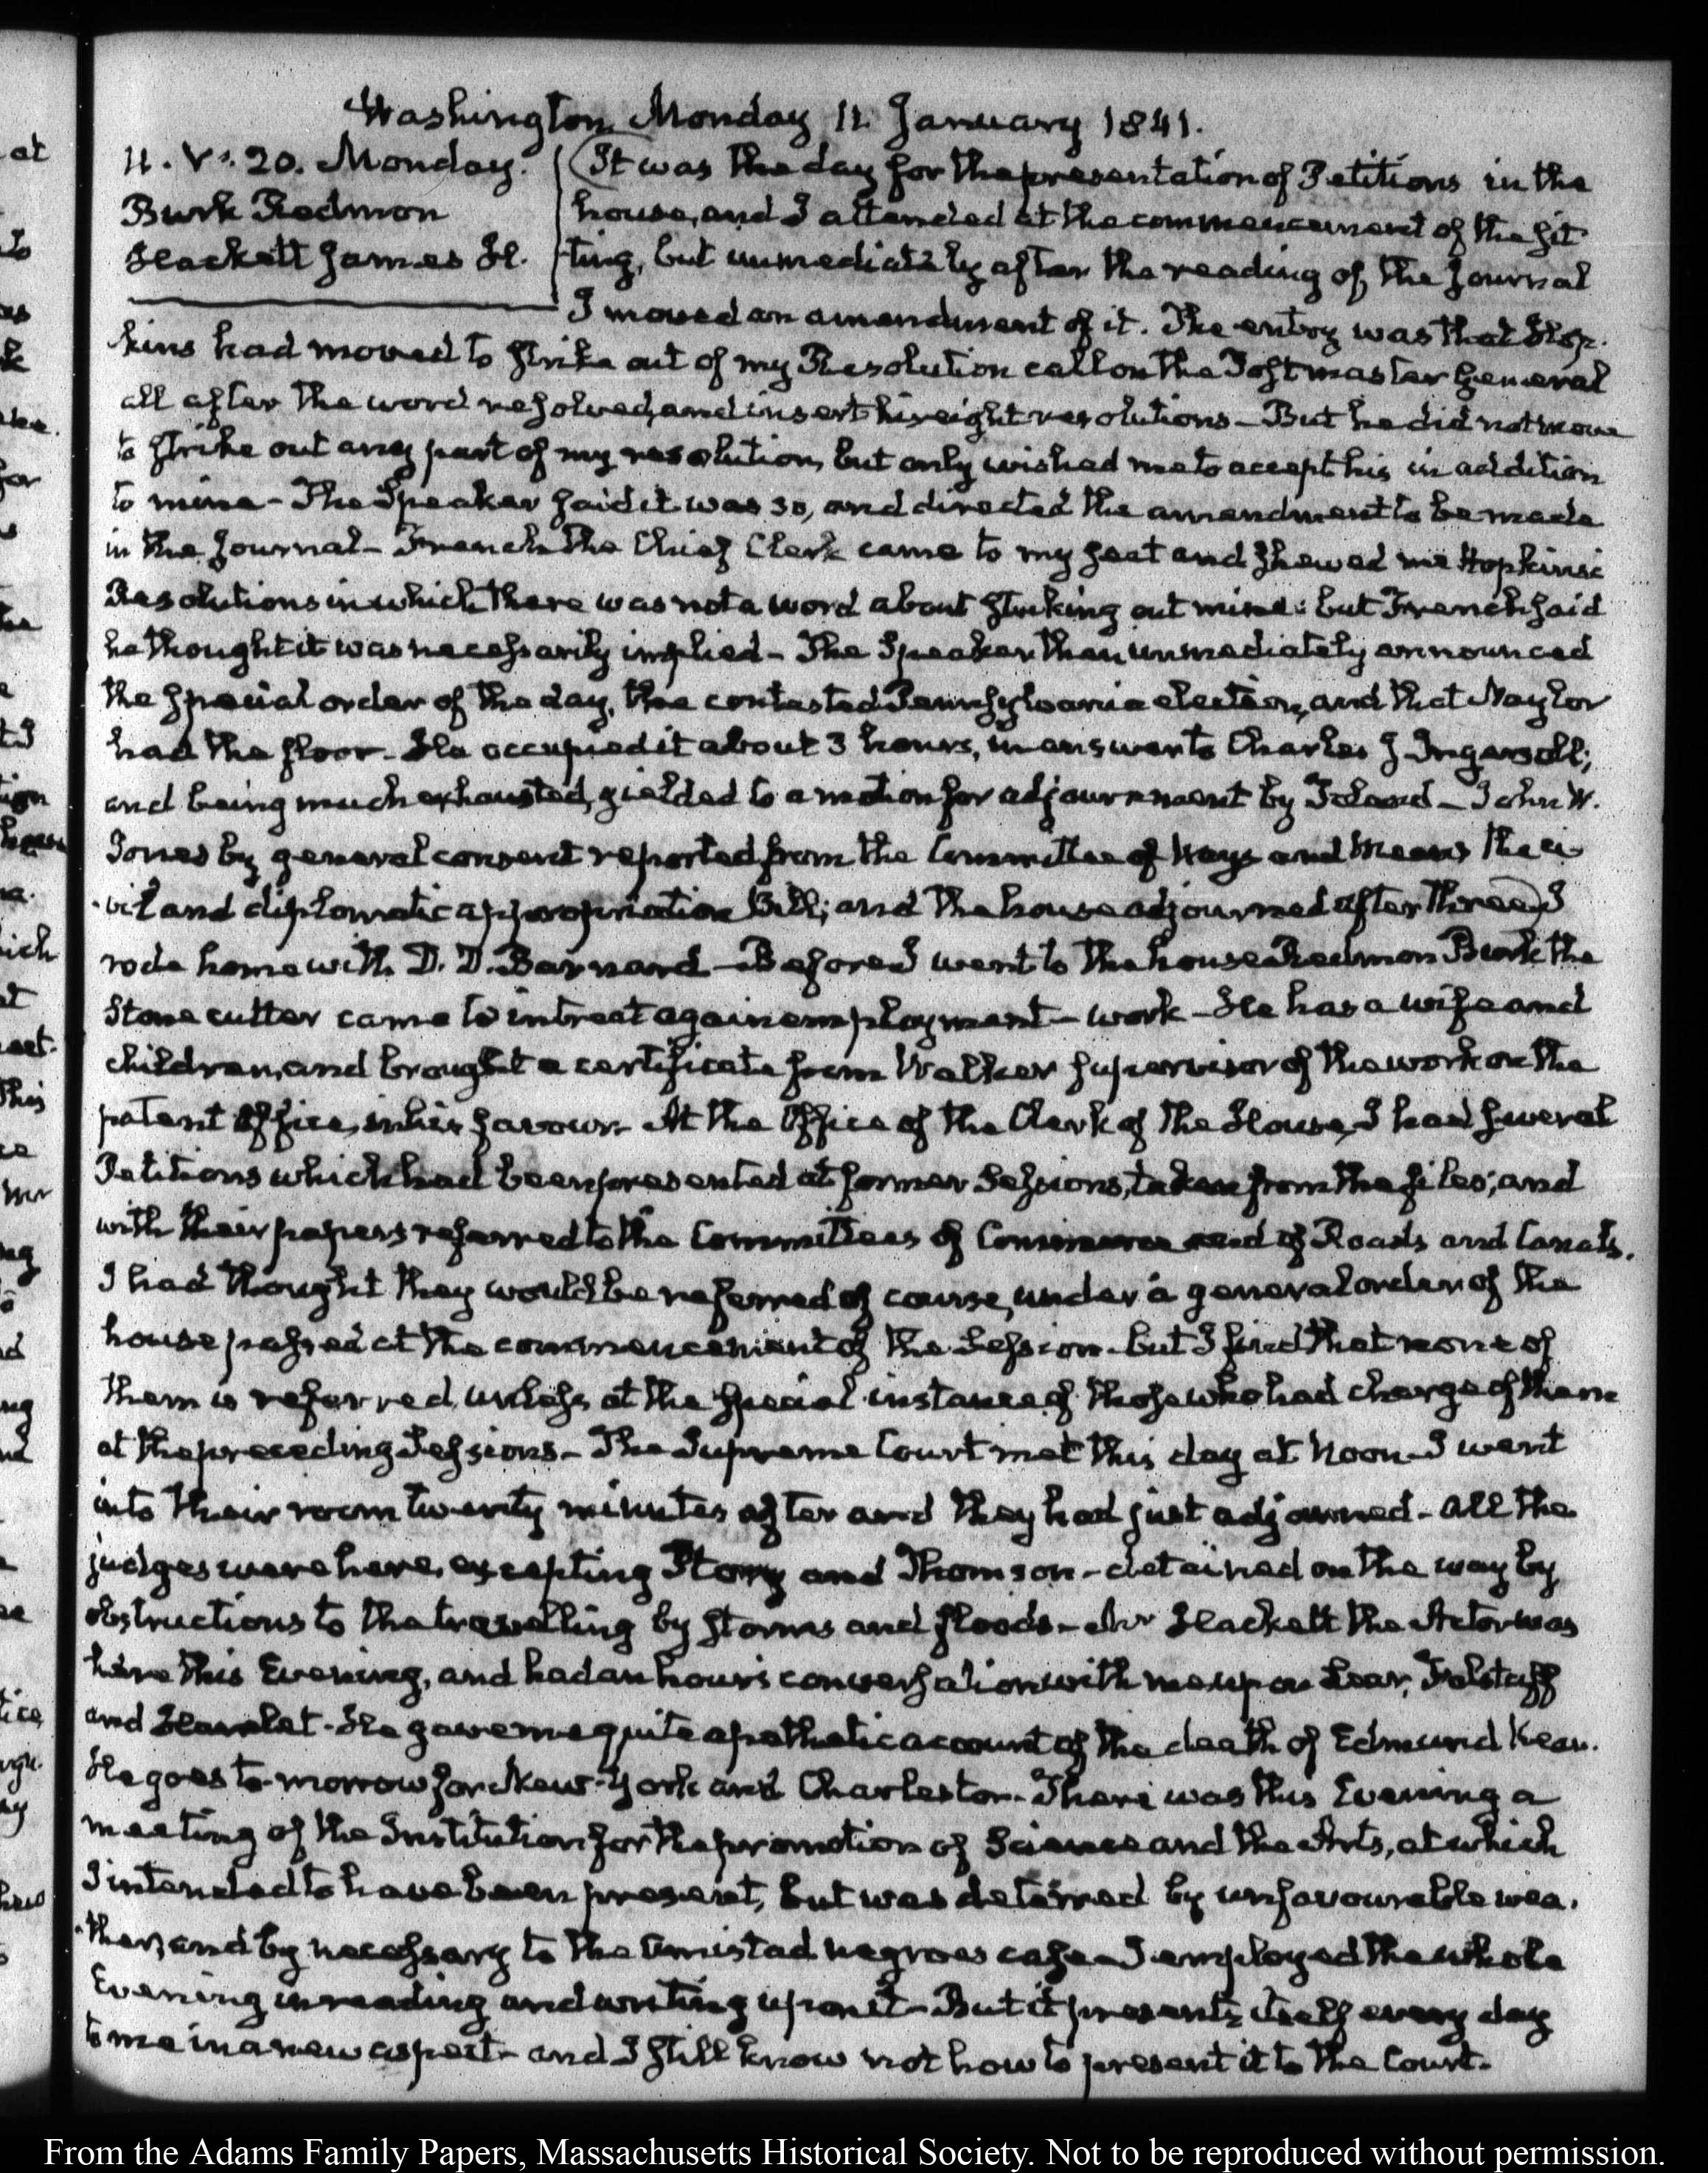 Washington Monday 11 January 1841.
11. V:20. Monday.
Burk Redmon
Hackett James H.
It was the day for the presentation of Petitions in the
house, and I attended at the commencement of the sit
ting, but immediately after the reading of the Journal
I moved an amendment of it. The entry was that Hop-
kins had moved to strike out of my Resolution call on the Postmaster General
all after the word resolved, and insert his eight resolutions – But he did not move
to strike out any part of my resolution, but only wished me to accept his in addition
to mine – The Speaker said it was so, and directed the amendment to be made
in the Journal – French the Chief Clerk came to my seat and shewed me Hopkins's
Resolutions in which there was not a word about striking out mine: but French said
he thought it was necessarily implied – The Speaker then immediately announced
the special order of the day, the contested Pennsylvania election, and that Naylor
had the floor – He occupied it about 3 hours, in answer to Charles J Ingersoll;
and being much exhausted, yielded to a motion for adjournment by – John W.
Jones by general consent reported from the Committee of Ways and Means the ci-
-vil and diplomatic appropriation Bill; and the house adjourned after three) I
rode home with D. D. Barnard – Before I went to the house Redmon Burk the
Stone cutter came to intreat again employment – work – He has a wife and
children, and brought a certificate from Walker supervisor of the work on the
patent Office, in his favour – At the Office of the Clerk of the House, I had several
Petitions which had been presented at former Sessions, taken from the files; and
with their papers referred to the Committees of Commerce and of Roads and Canals.
I had thought they would be referred of course, under a general order of the
house passed at the commencement of the Session – but I find that none of
them is referred, unless at the special instance of those who had charge of them
at the preceding Sessions – The Supreme Court met this day at Noon – I went
into their room twenty minutes after and they had just adjourned – All the
judges were here, excepting Story and Thomson – detained on the way by
obstructions to the travelling by storms and floods – Mr Hackett the Actor was
here this Evening, and had an hour's conversation with me upon Lear, Falstaff
and Hamlet – He gave me quite a pathetic account of the death of Edmund Kean.
He goes to-morrow for New-York and Charleston – There was this Evening a
meeting of the Institution for the promotion of Science and the Arts, at which
I intended to have been present, but was deterred by unfavourable wea-
-ther, and by necessary to the Amistad negroes case – I employed the whole
Evening in reading and writing upon it – But it presents itself every day
to me in a new aspect – and I still know not how to present it to the Court.
From the Adams Family Papers, Massachusetts Historical Society. Not to be reproduced without permission.